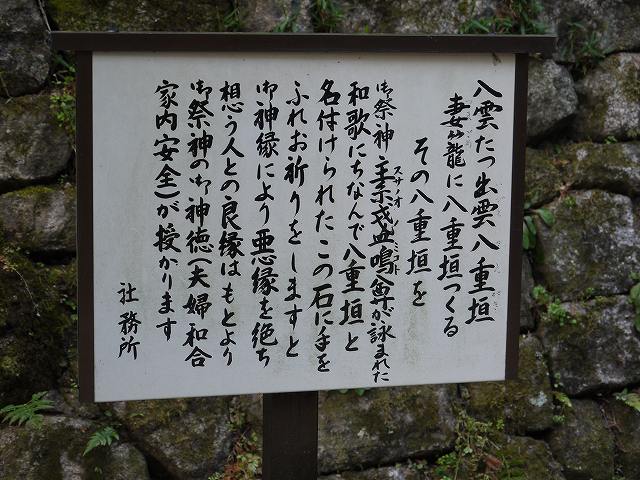 八雲たつ出雲八重垣
妻籠に八重垣つくる
その八重垣を
御祭神 素盞鳴尊が詠まれた
スサノオノミコト
和歌にちなんで八重垣と
名付けられたこの石に手を
ふれお祈りをしますと
御神縁により悪縁を絶ち
想う人との良縁はもとより
御祭神の御神徳(夫婦和合
家内安全)が授かります
社務所